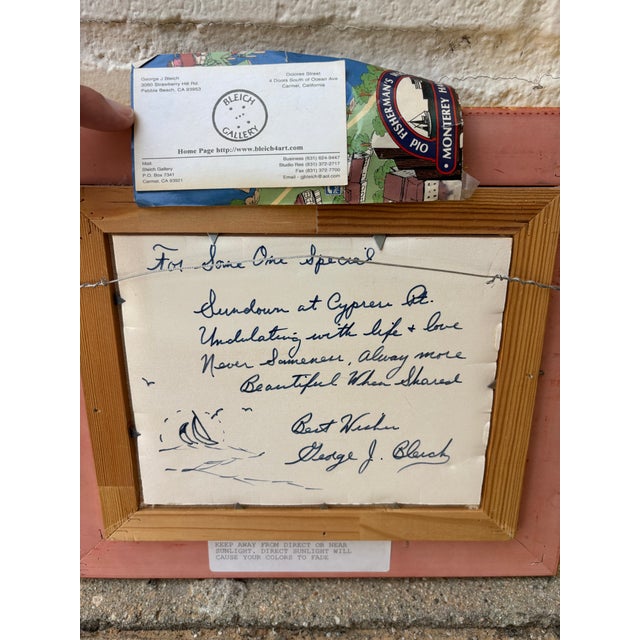 George J Bleich
3080 Strawberry Hill Rd
Pebble Beach, CA 93953
Dolores Street
4 Doors South of Ocean Ave
Carmel, California
BLEICH
GALLERY
Home Page http://www.bleich4art.com
Mail:
Bleich Gallery
P.O. Box 7341
Carmel, CA 93921
Business (831) 624-9447
Studio Res (831) 372-2717
Fax (831) 372-7700
Email - gjbleich@aol.com
OLD FISHERMAN'S
MONTEREY
For Some One Special
Sundown at Cypress Pt.
Undulating with life + love
Never Sameness, alway more
Beautiful When Shared
Best Wishes
George J. Bleich
KEEP AWAY FROM DIRECT OR NEAR
SUNLIGHT. DIRECT SUNLIGHT WILL
CAUSE YOUR COLORS TO FADE